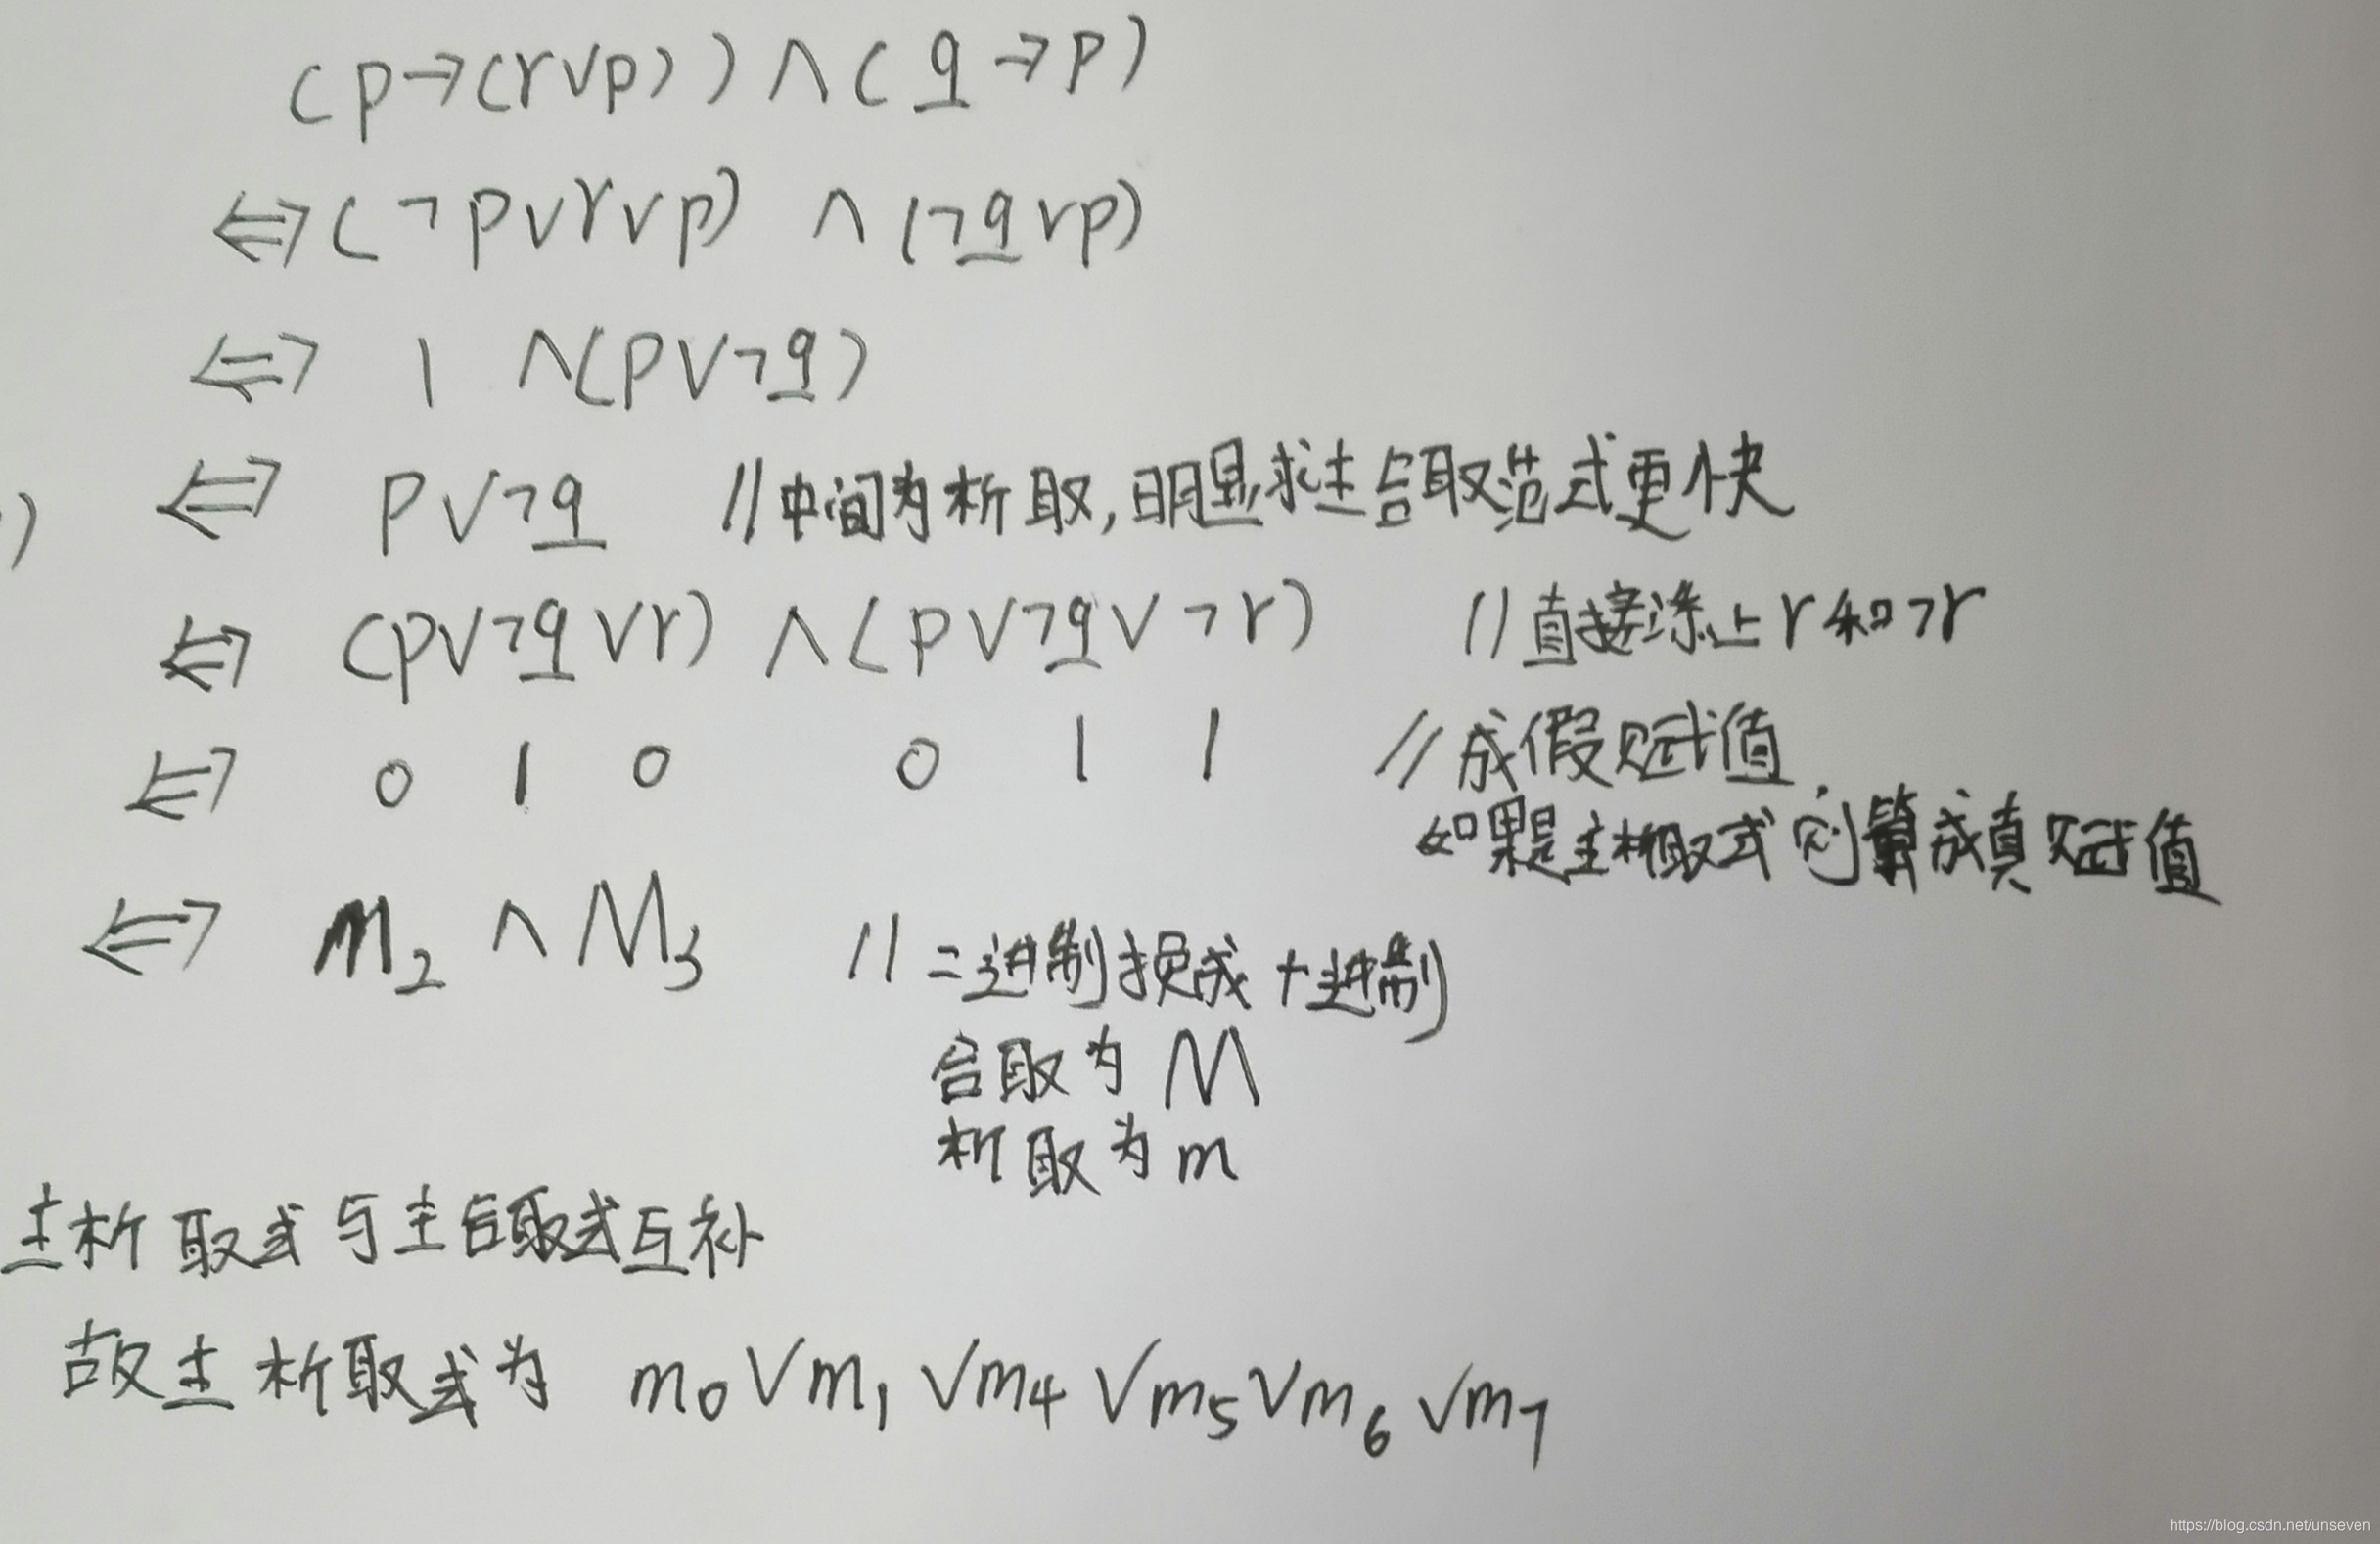 (p→(r∨p))∧(q→p)
⇔(¬p∨r∨p) ∧(¬q∨p)
⇔ 1 ∧(p∨¬q)
) ⇔ p∨¬q //中间为析取,明显求主合取范式更快
⇔ (p∨¬q∨r) ∧(p∨¬q∨¬r) //直接添上r和¬r
⇔ 0 1 0 0 1 1 //成假赋值.
如果是主析取式则算成真赋值
⇔ m₂ ∧ M₃ //二进制换成十进制
合取为M
析取为m
主析取式与主合取式互补
故主析取式为 m₀∨m₁∨m₄∨m₅∨m₆∨m₇
https://blog.csdn.net/unseven